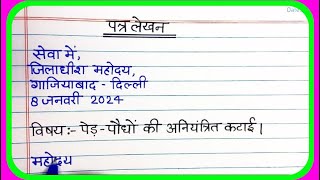 पत्र लेखन
सेवा में,
जिलाधीश महोदय,
गाजियाबाद - दिल्ली
8 जनवरी 2024
विषय:- पेड़-पौधों की अनियंत्रित कटाई।
महोदय